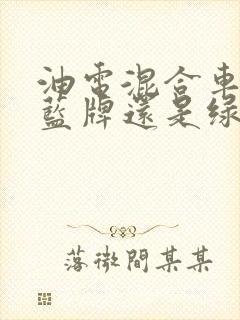 油電混合車
藍牌還是綠
落微間某某